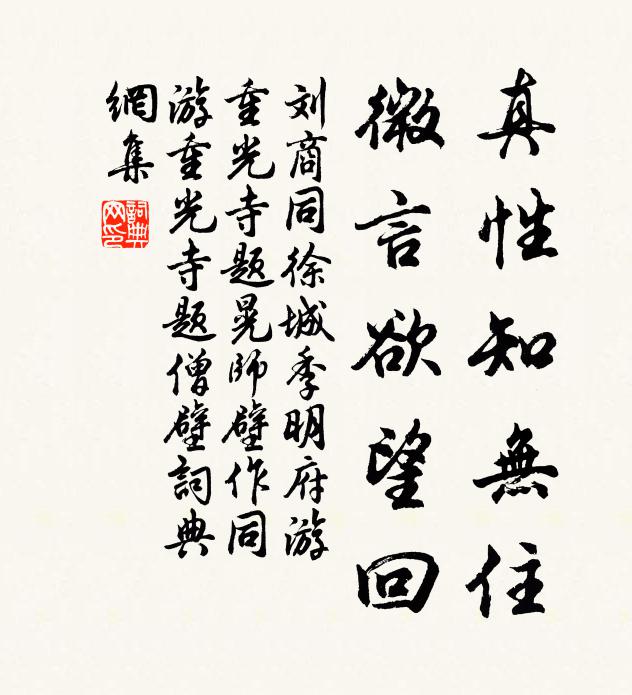 真性知無住
微言欲望回
刘商同徐城季明府游
重光寺题晃師壁作同
游重光寺题僧壁詞典
網集
詞典網印